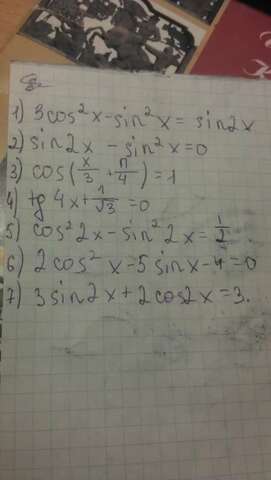 1) 3cos²x-sin²x = sin2x
2) sin2x - sin²x=0
3) cos(x/3+π/4)=1
4) tg4x+1/√3=0
5) cos²2x-sin²2x=1/2
6) 2cos²x-5sinx-4=0
7) 3sin2x+2cos2x=3.